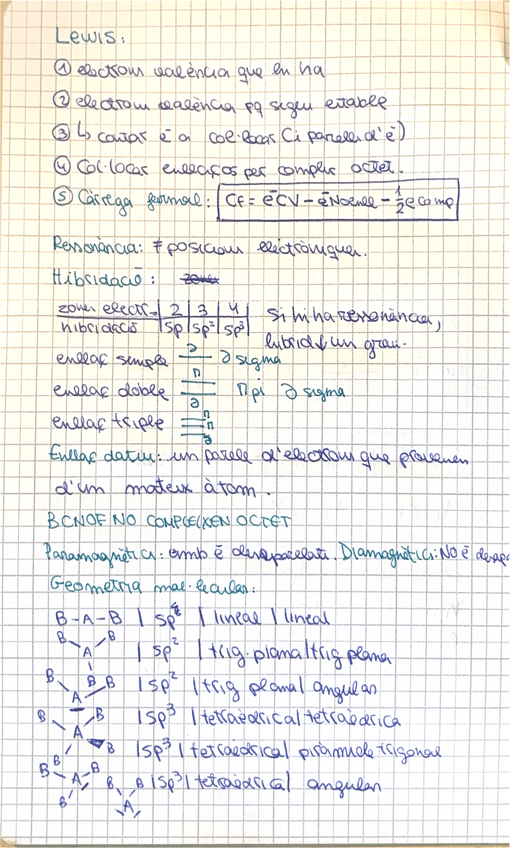 Lewis:
① electrons valència que hi ha
② electrons valència pq sigui estable
③ ↳ contar ē a col·locar (i parells d'ē)
④ Col·locar enllaços per complir octet.
⑤ Càrrega formal: CF = ēCV - ēNoenll - 1/2 ē comp
Ressonància: ≠ posicions electròniques.
Hibridació:
zones electr. | 2 | 3 | 4 | si hi ha ressonància,
hibridació | sp | sp² | sp³ | hibrid ↓ un grau.
enllaç simple ∂ ∂ sigma
enllaç doble π ∂ π pi ∂ sigma
enllaç triple π π ∂
Enllaç datiu: un parell d'electrons que provenen
d'un mateix àtom.
BCNOF NO COMPLEIXEN OCTET
Paramagnètica: amb ē desaparellats. Diamagnètica: NO ē desapa
Geometria mol·lecular:
B-A-B | sp | lineal | lineal
B A B B | sp² | trig. plana | trig plana
B A B | sp² | trig plana | angular
B B A B B | sp³ | tetraèdrica | tetraèdrica
B A B B | sp³ | tetraèdrica | piràmide trigonal
B A B | sp³ | tetraèdrica | angular